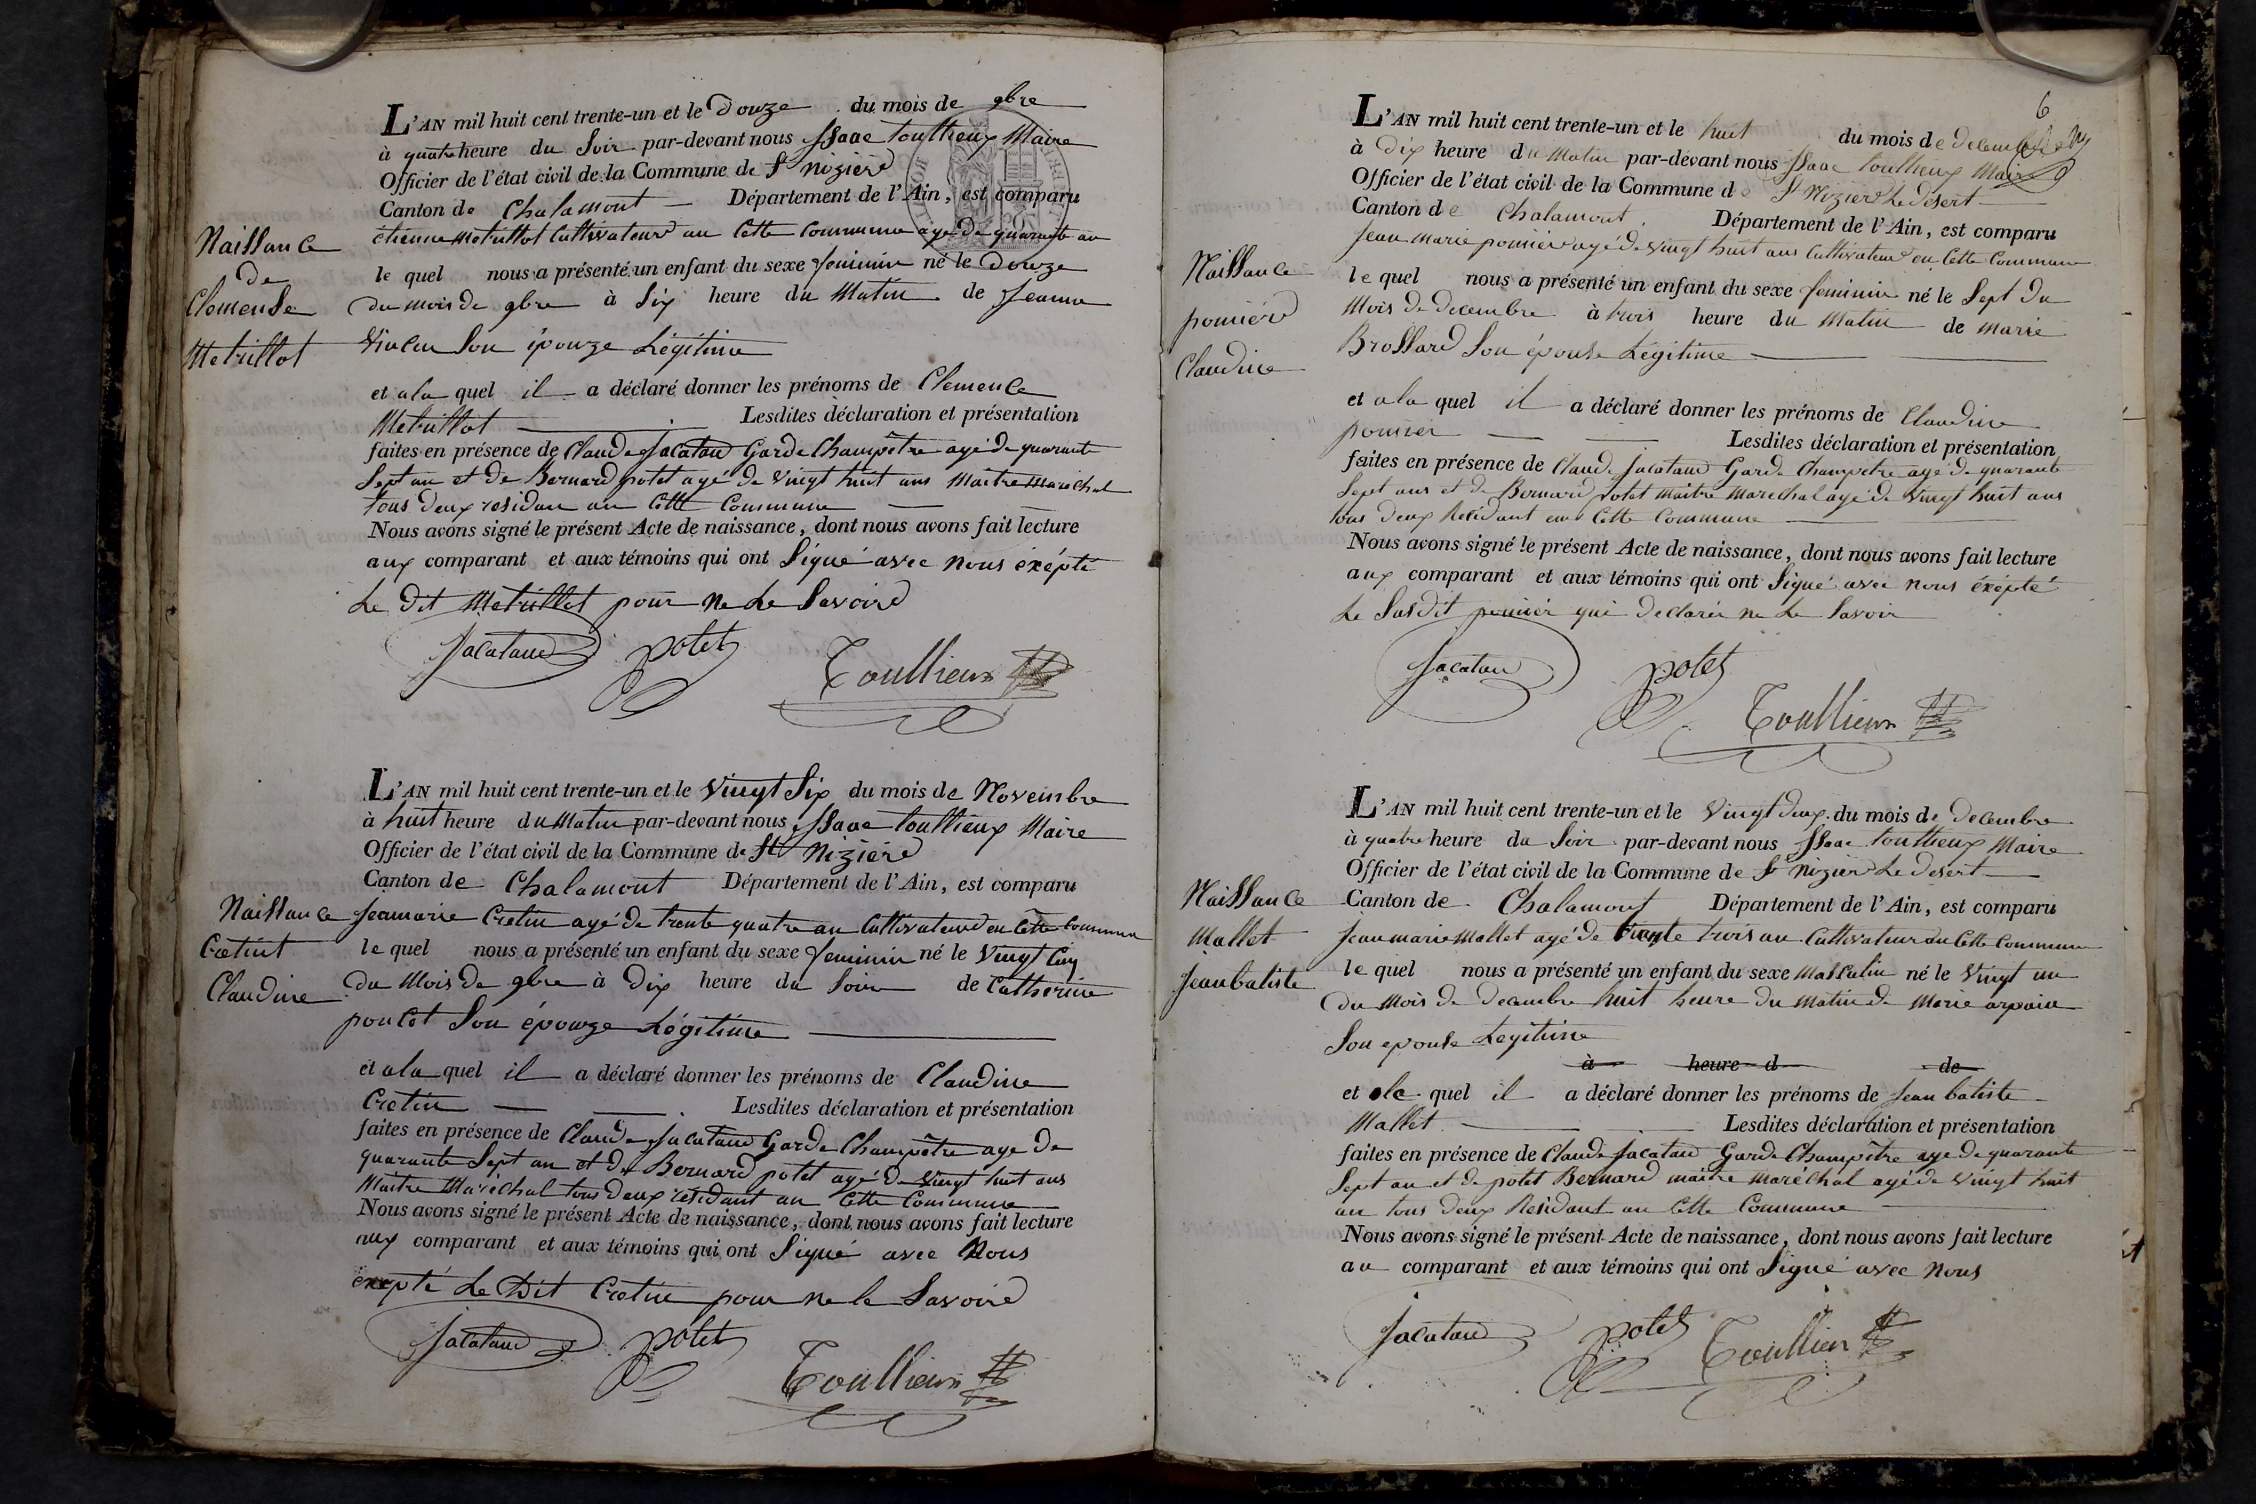 L'AN mil huit cent trente-un et le Douze du mois de 9bre
à quatre heure du Soir par-devant nous Issaac toullieux Maire
Officier de l'état civil de la Commune de St Nizierd
Canton de Chalamont Département de l'Ain, est comparu
étienne Metrillot Cultivateurd an Cette Commune agé de quarante an
le quel nous a présenté un enfant du sexe feminin né le Douze
Du mois de 9bre à Six heure du Matin de Jeanne
Son épouze Légitime
et a la quel il a déclaré donner les prénoms de Clemence
Metrillot Lesdites déclaration et présentation
faites en présence de Claude Jacataud Garde Champêtre agé de quarante
Sept an et de Bernard potet agé de Vingt huit ans Maitre Marechal
tous Deux residan an Cette Commune
Nous avons signé le présent Acte de naissance, dont nous avons fait lecture
aux comparant et aux témoins qui ont Signé avec nous éxépté
Le Dit Metrillot pour ne Le Savoird
Jacataud potet Toullieux
Naissance
de
Clemense
Metrillot
L'AN mil huit cent trente-un et le Vingt Six du mois de Novembre
à huit heure du Matin par-devant nous Issaac toullieux Maire
Officier de l'état civil de la Commune de St Nizierd
Canton de Chalamont Département de l'Ain, est comparu
Jeanmarie Cretin agé de trente quatre an Cultivateurd en Cette Commune
le quel nous a présenté un enfant du sexe feminin né le Vingt Cinq
Du Mois De 9bre à Dix heure du Soir de Catherine
poncet Son épouze Légitime
et a la quel il a déclaré donner les prénoms de Claudine
Cretin Lesdites déclaration et présentation
faites en présence de Claude Jacataud Garde Champêtre age De
quarante Sept an et De Bernard potet agé De Vingt huit ans
Maitre Maréchal tous Deux résidant an Cette Commune
Nous avons signé le présent Acte de naissance, dont nous avons fait lecture
aux comparant et aux témoins qui ont Signé avec Nous
éxepté Le Dit Cretin pour ne le Savoird
Jacataud potet Toullieux
Naissance
Cretint
Claudine
6
L'AN mil huit cent trente-un et le huit du mois de Decembre
à Dix heure du Matin par-devant nous Issaac toullieux Maire
Officier de l'état civil de la Commune de St Nizierd Le Desert
Canton de Chalamont Département de l'Ain, est comparu
Jean Marie pomier agé de Vingt huit ans Cultivateur en Cette Commune
le quel nous a présenté un enfant du sexe feminin né le Sept Du
Mois De Decembre à trois heure du Matin de Marie
Brossard Son épouse Légitime
et a la quel il a déclaré donner les prénoms de Claudine
pomier Lesdites déclaration et présentation
faites en présence de Claude Jacataud Garde Champêtre agé de quarante
Sept ans et de Bernard potet Maitre Marechal agé de Vingt huit ans
tous Deux Residant en Cette Commune
Nous avons signé le présent Acte de naissance, dont nous avons fait lecture
aux comparant et aux témoins qui ont Signé avec nous éxépté
Le Susdit pomier qui declarér ne Le Savoir
Jacataud potet Toullieux
Naissance
pomierd
Claudine
L'AN mil huit cent trente-un et le Vingt deux du mois de Decembre
à quatre heure du Soir par-devant nous Issaac toullieux Maire
Officier de l'état civil de la Commune de St Nizierd Le Desert
Canton de Chalamont Département de l'Ain, est comparu
Jeanmarie Mallet agé de trente trois an Cultivateur an Cette Commune
le quel nous a présenté un enfant du sexe Masculin né le Vingt un
Du Mois De Decembre huit heure Du Matin De Marie arpain
Son epouse Legitime
à heure d de
et a le quel il a déclaré donner les prénoms de Jean batiste
Mallet Lesdites déclaration et présentation
faites en présence de Claude Jacataud Garde Champêtre age de quarante
Sept an et de potet Bernard maitre maréchal agé de Vingt huit
an tous Deux Residant an Cette Commune
Nous avons signé le présent Acte de naissance, dont nous avons fait lecture
au comparant et aux témoins qui ont Signé avec Nous
Jacataud potet Toullieux
Naissance
Mallet
Jeanbatiste